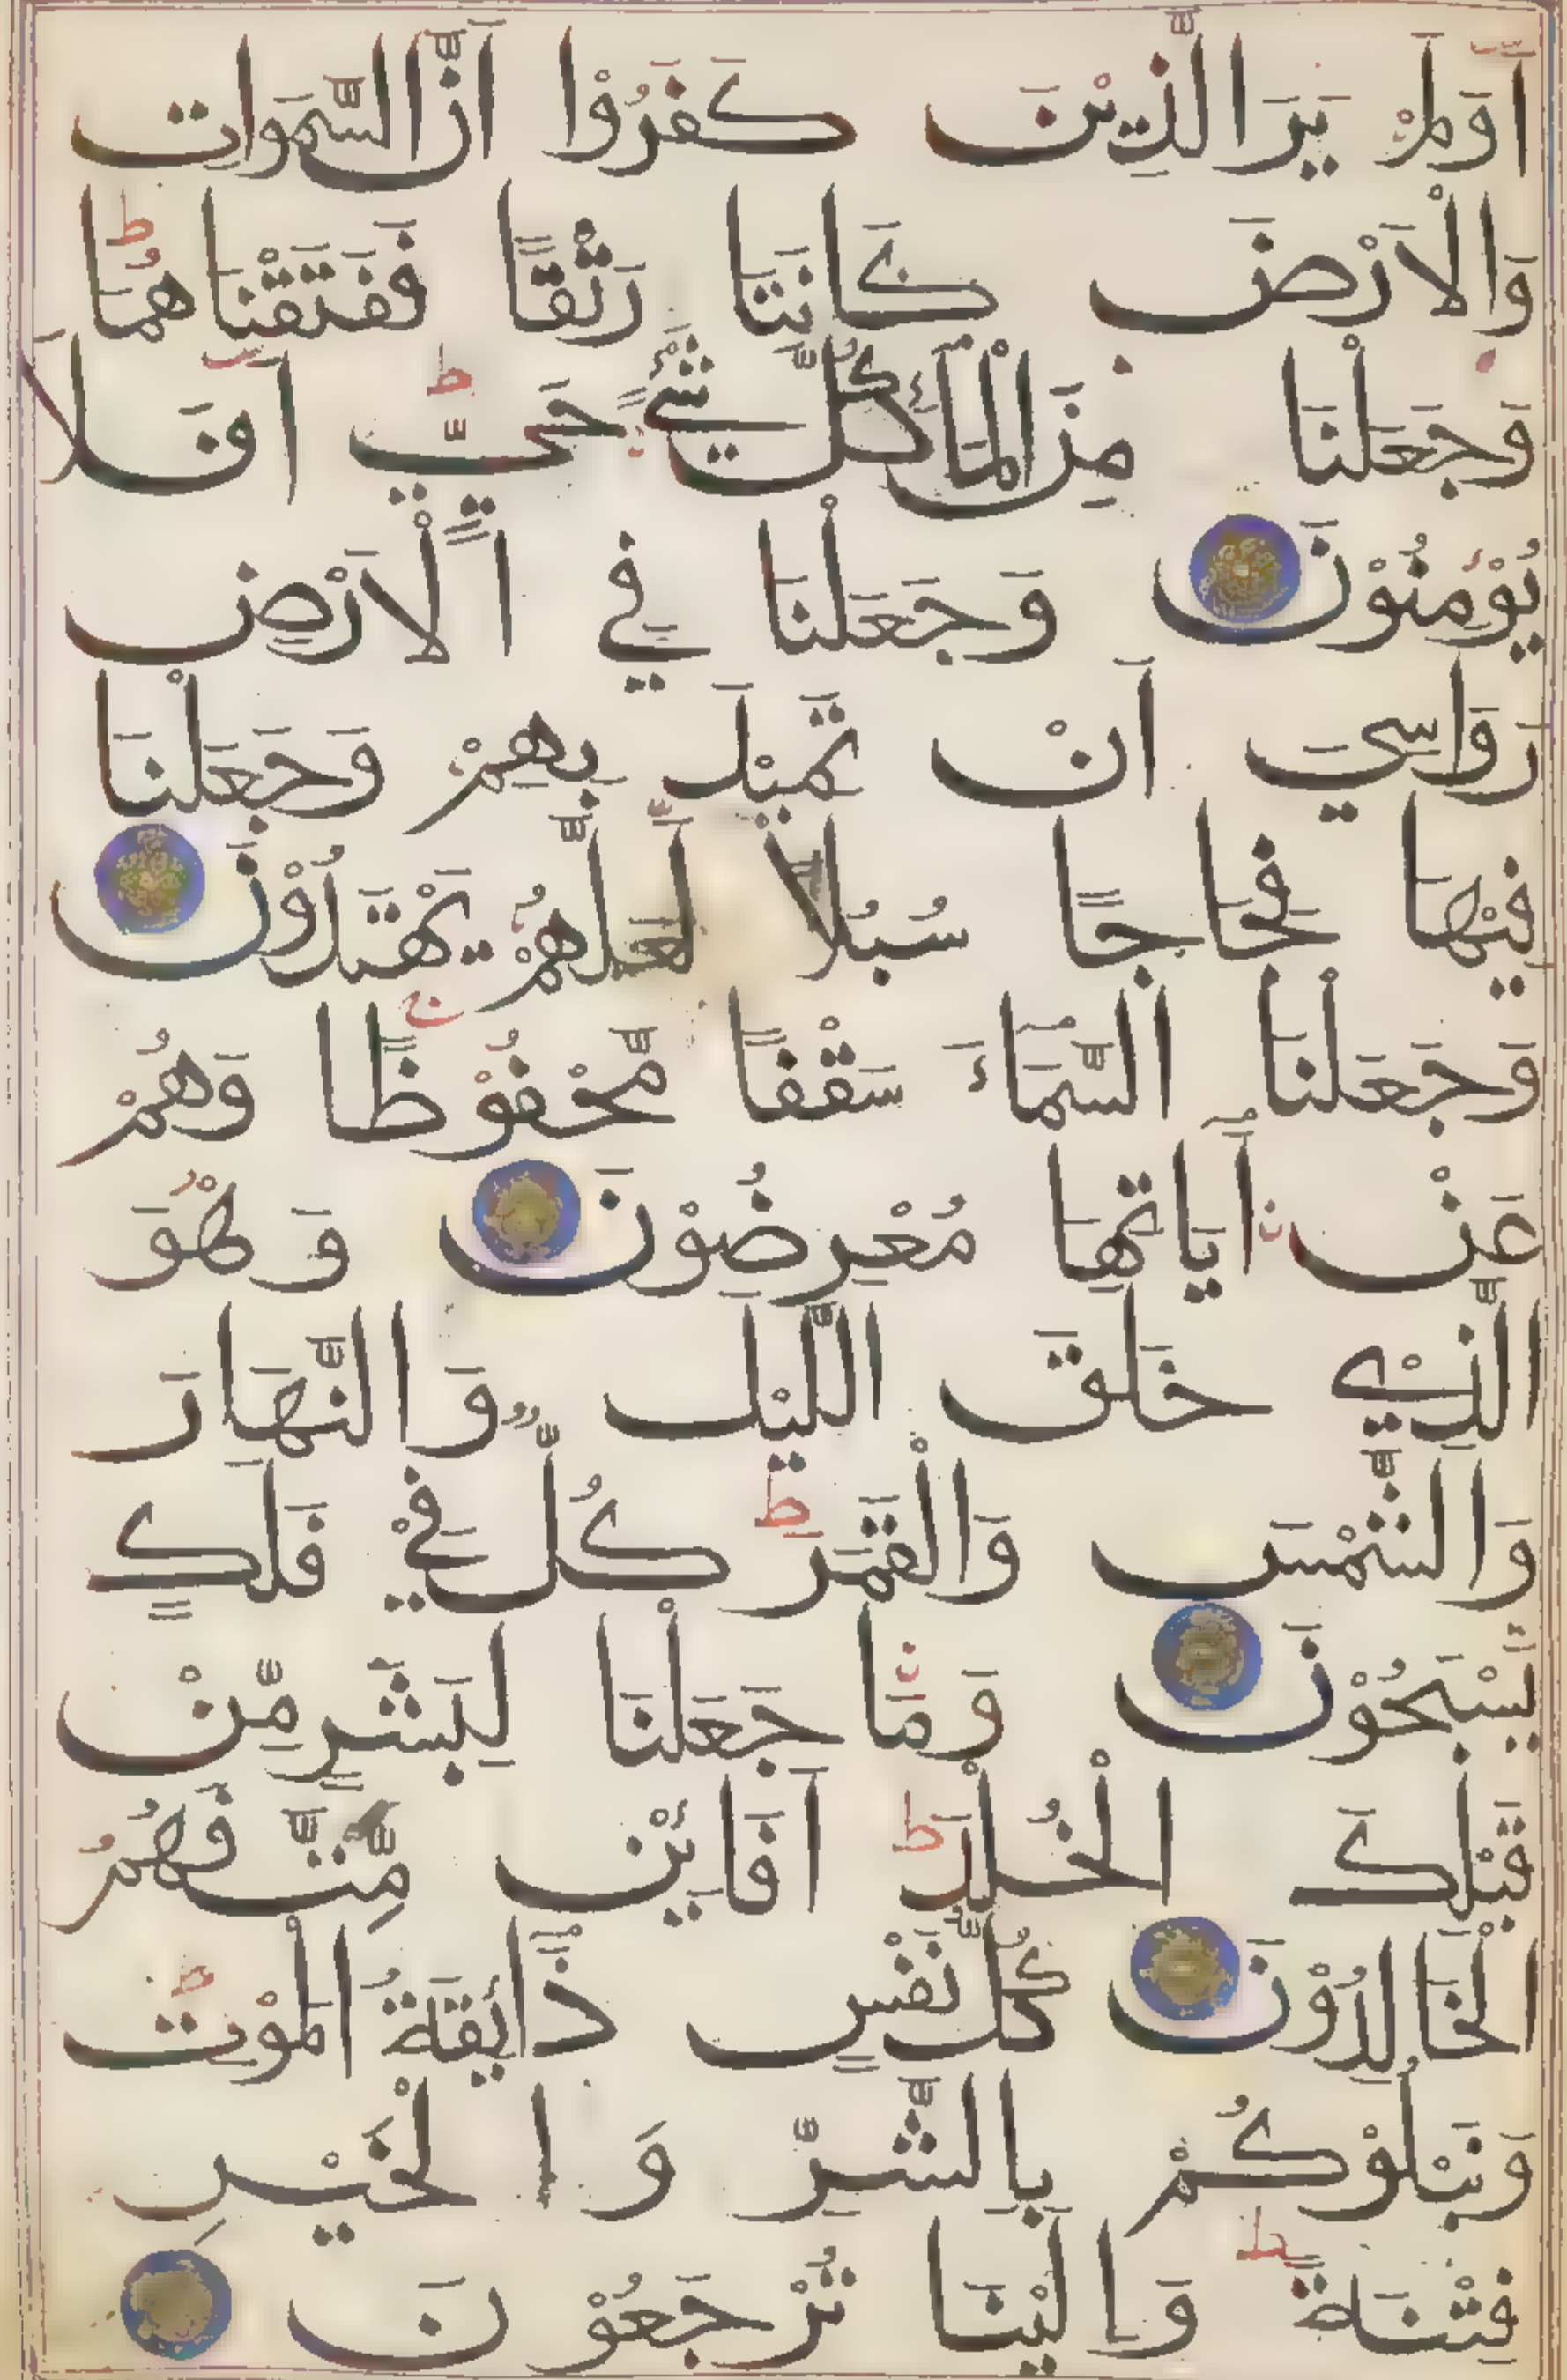 اَوَلَمْ يَرَ الَّذِيْنَ كَفَرُوْا اَنَّ السَّمَوَات
وَالْاَرْضَ كَانَتَا رَتْقًا فَفَتَقْنَاهُمَا ط
وَجَعَلْنَا مِنَ الْمَاءِ كُلَّ شَيْءٍ حَيٍّ ط اَفَلَا
يُؤْمِنُوْنَ وَجَعَلْنَا فِي الْاَرْضِ
رَوَاسِيَ اَنْ تَمِيْدَ بِهِمْ وَجَعَلْنَا
فِيْهَا فِجَاجًا سُبُلًا لَّعَلَّهُمْ يَهْتَدُوْنَ
وَجَعَلْنَا السَّمَاءَ سَقْفًا مَّحْفُوْظًا ج وَهُمْ
عَنْ اٰيَاتِهَا مُعْرِضُوْنَ وَهُوَ
الَّذِيْ خَلَقَ اللَّيْلَ وَالنَّهَارَ
وَالشَّمْسَ وَالْقَمَرَ ط كُلٌّ فِيْ فَلَكٍ
يَسْبَحُوْنَ وَمَا جَعَلْنَا لِبَشَرٍ مِّنْ
قَبْلِكَ الْخُلْدَ ط اَفَائِنْ مِّتَّ فَهُمُ
الْخَالِدُوْنَ كُلُّ نَفْسٍ ذَائِقَةُ الْمَوْتِ ط
وَنَبْلُوْكُمْ بِالشَّرِّ وَالْخَيْرِ
فِتْنَةً ط وَاِلَيْنَا تُرْجَعُوْنَ